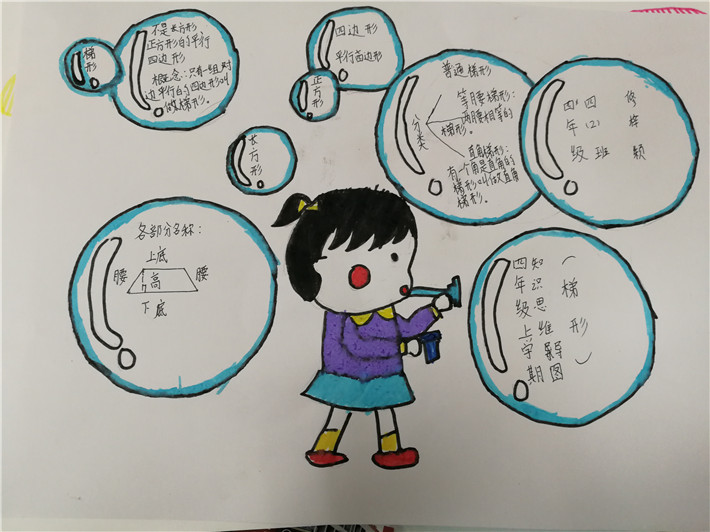 梯形
不是长方形
正方形的平行
四边形
概念：只有一组对
边平行的四边形叫
做梯形。
四边形
平行四边形
正方形
长方形
分类
普通梯形
等腰梯形：
两腰相等的
梯形。
直角梯形：
有一个角是直角的
梯形叫做直角
梯形。
四年级
四(2)班
修梓颖
各部分名称：
上底
腰
高
腰
下底
四年级上学期
知识思维导图
（梯形）